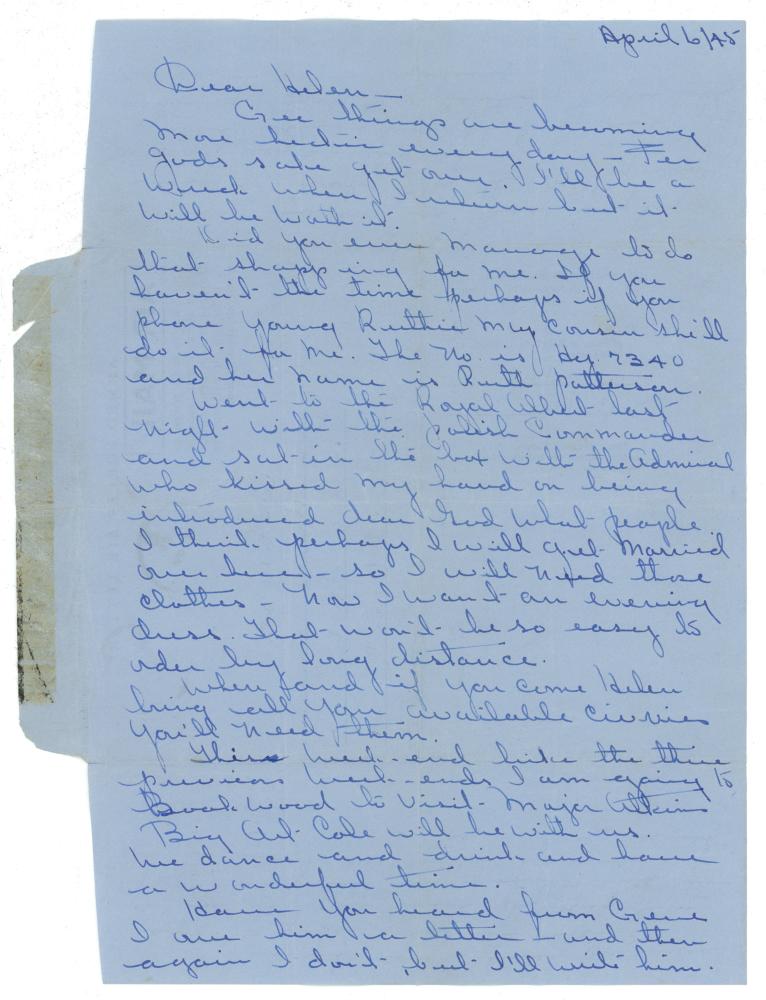 April 6/45
Dear Helen—
Gee things are becoming
more hectic every day— Fer
gods sake get over. I'll be a
wreck when I return but it
will be worth it.
Did you ever manage to do
that shopping for me. If you
haven't the time perhaps if you
phone young Ruthie my cousin she'll
do it for me. The No. is Hy 7340
and her name is Ruth Patterson.
Went to the Royal Albert last
night with the Polish Commander
and sat in the box with the Admiral
who kissed my hand on being
introduced dear God what people
I think perhaps I will get married
over here — so I will need those
clothes — Now I want an evening
dress. That won't be so easy to
order by long distance.
When and if you come Helen
bring all your available civvies
You'll need them.
This week-end like the three
previous week-ends I am going to
Bookwood to visit Major Atkins
Big Art Cole will be with us.
We dance and drink and have
a wonderful time.
Have you heard from Gene
I owe him a letter — and then
again I don't, but I'll write him.